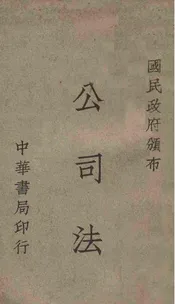 國民政府頒布
公司法
中華書局印行